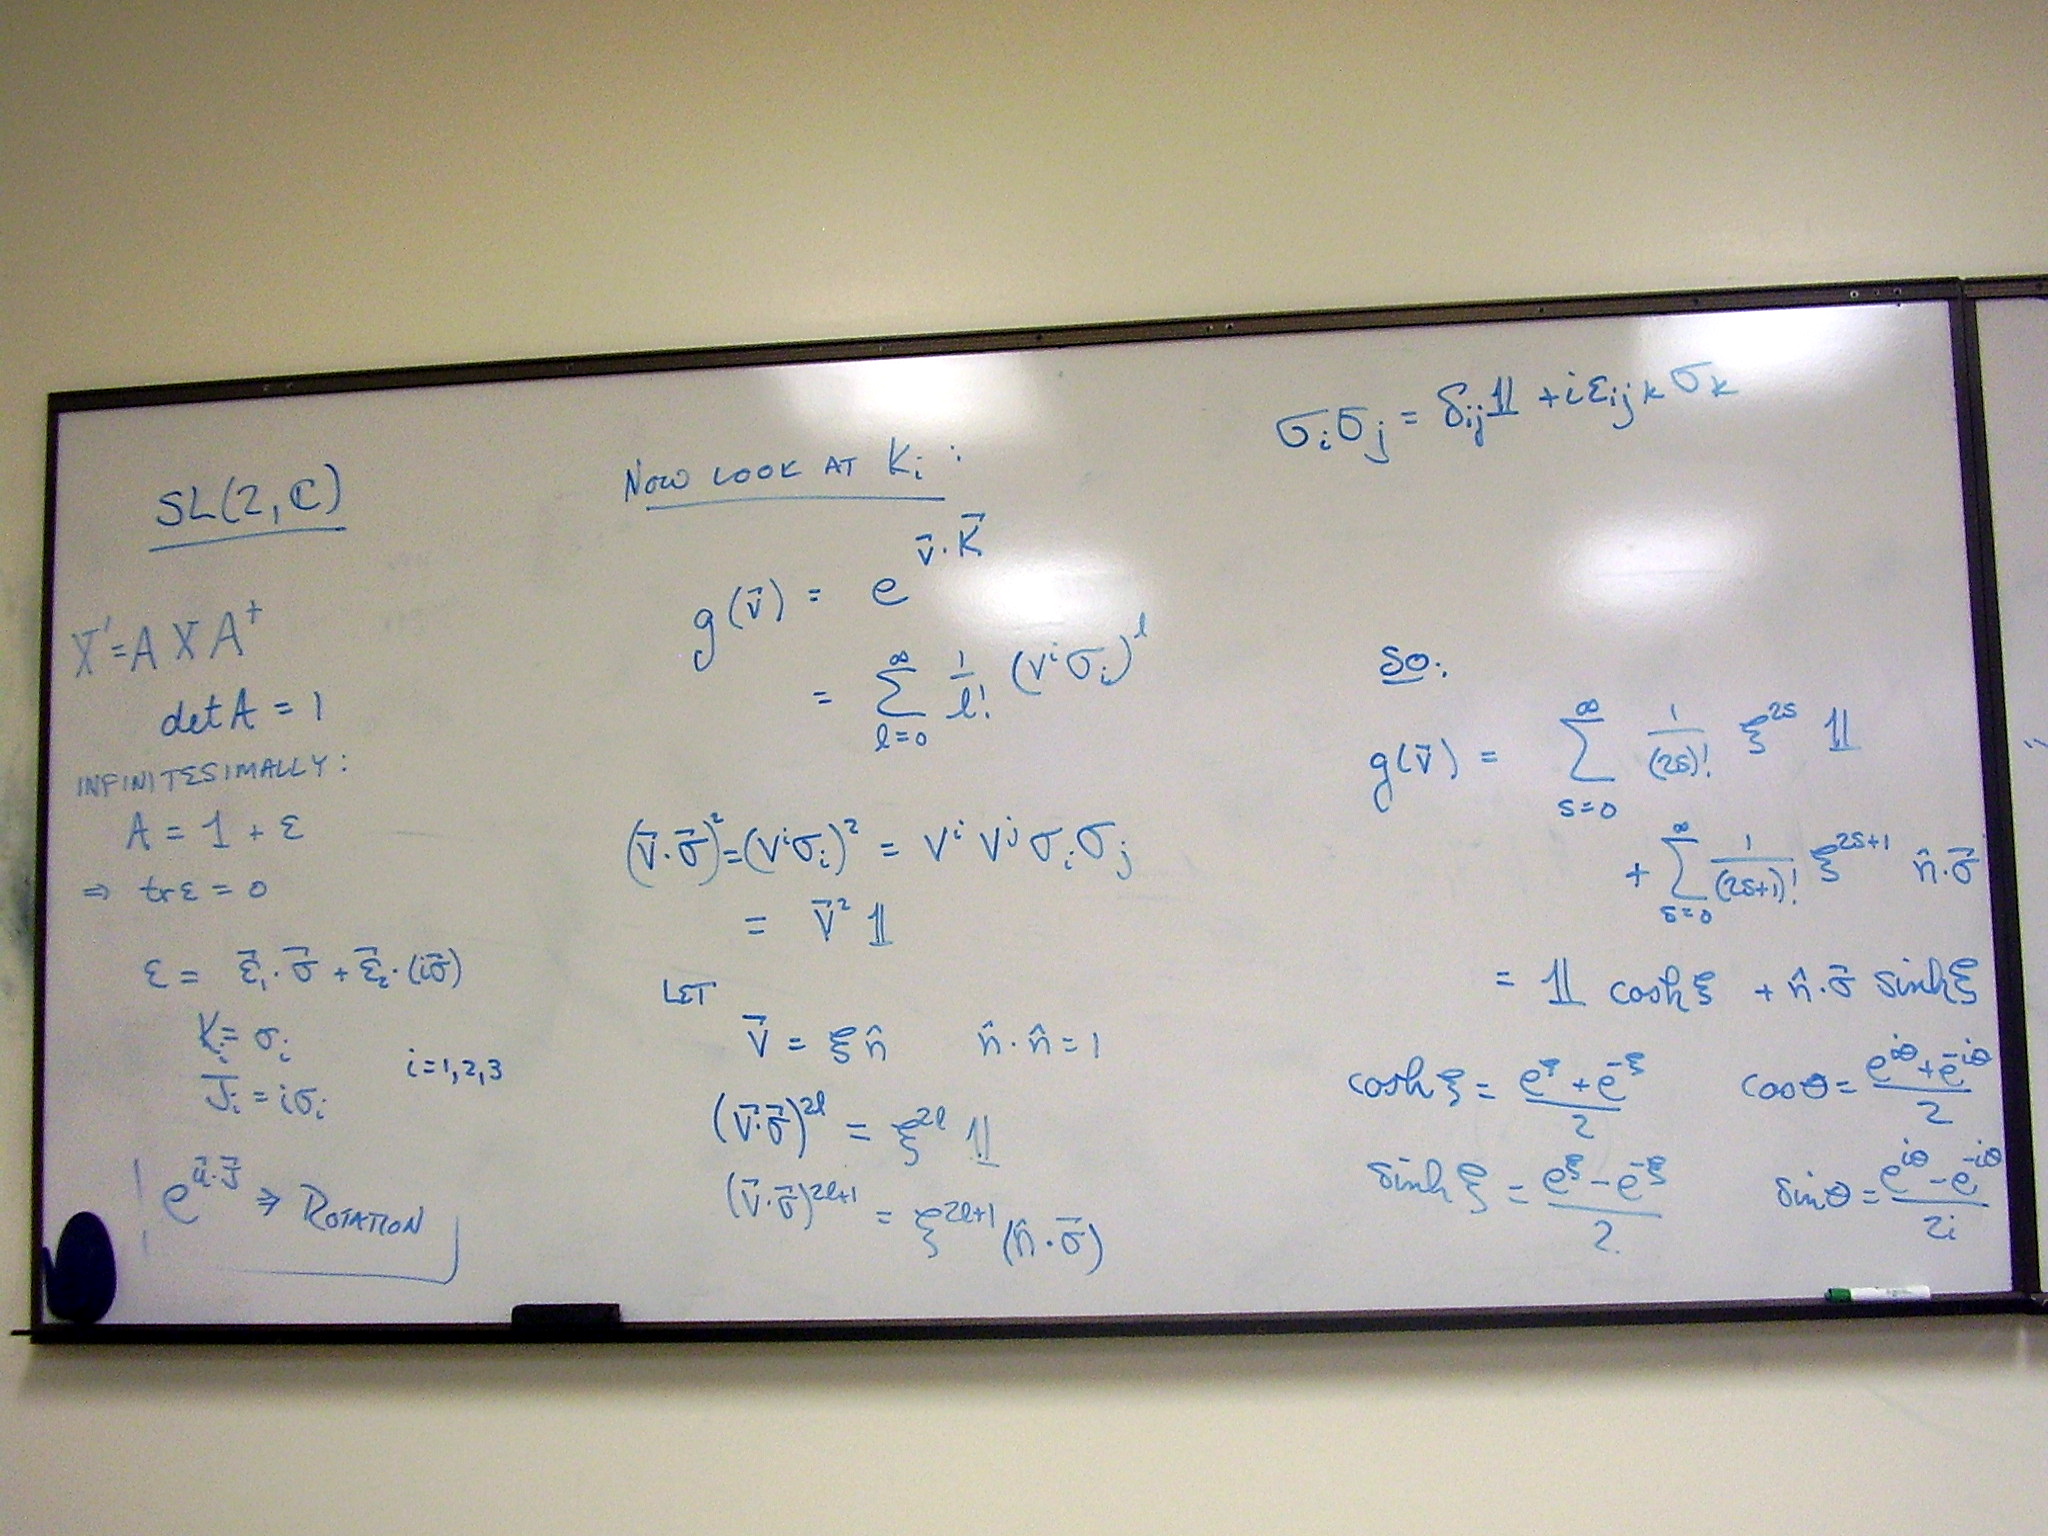 SL(2,ℂ)
X' = A X A†
det A = 1
INFINITESIMALLY:
A = 1 + ε
⇒ tr ε = 0
ε = ε⃗₁·σ⃗ + ε⃗₂·(iσ⃗)
Kᵢ = σᵢ
Jᵢ = iσᵢ i=1,2,3
e^{u⃗·J⃗} ⇒ ROTATION
NOW LOOK AT Kᵢ:
g(v⃗) = e^{v⃗·K⃗}
= ∑_{l=0}^{∞} 1/l! (vⁱσᵢ)^l
(v⃗·σ⃗)² = (vⁱσᵢ)² = vⁱ vʲ σᵢ σⱼ
= v⃗² 𝟙
LET
v⃗ = ξ n̂ n̂·n̂ = 1
(v⃗·σ⃗)^{2l} = ξ^{2l} 𝟙
(v⃗·σ⃗)^{2l+1} = ξ^{2l+1} (n̂·σ⃗)
σᵢσⱼ = δᵢⱼ𝟙 + iεᵢⱼₖσₖ
SO:
g(v⃗) = ∑_{s=0}^{∞} 1/(2s)! ξ^{2s} 𝟙
+ ∑_{s=0}^{∞} 1/(2s+1)! ξ^{2s+1} n̂·σ⃗
= 𝟙 cosh ξ + n̂·σ⃗ sinh ξ
cosh ξ = (e^ξ + e^{-ξ})/2 cos θ = (e^{iθ} + e^{-iθ})/2
sinh ξ = (e^ξ - e^{-ξ})/2 sin θ = (e^{iθ} - e^{-iθ})/2i